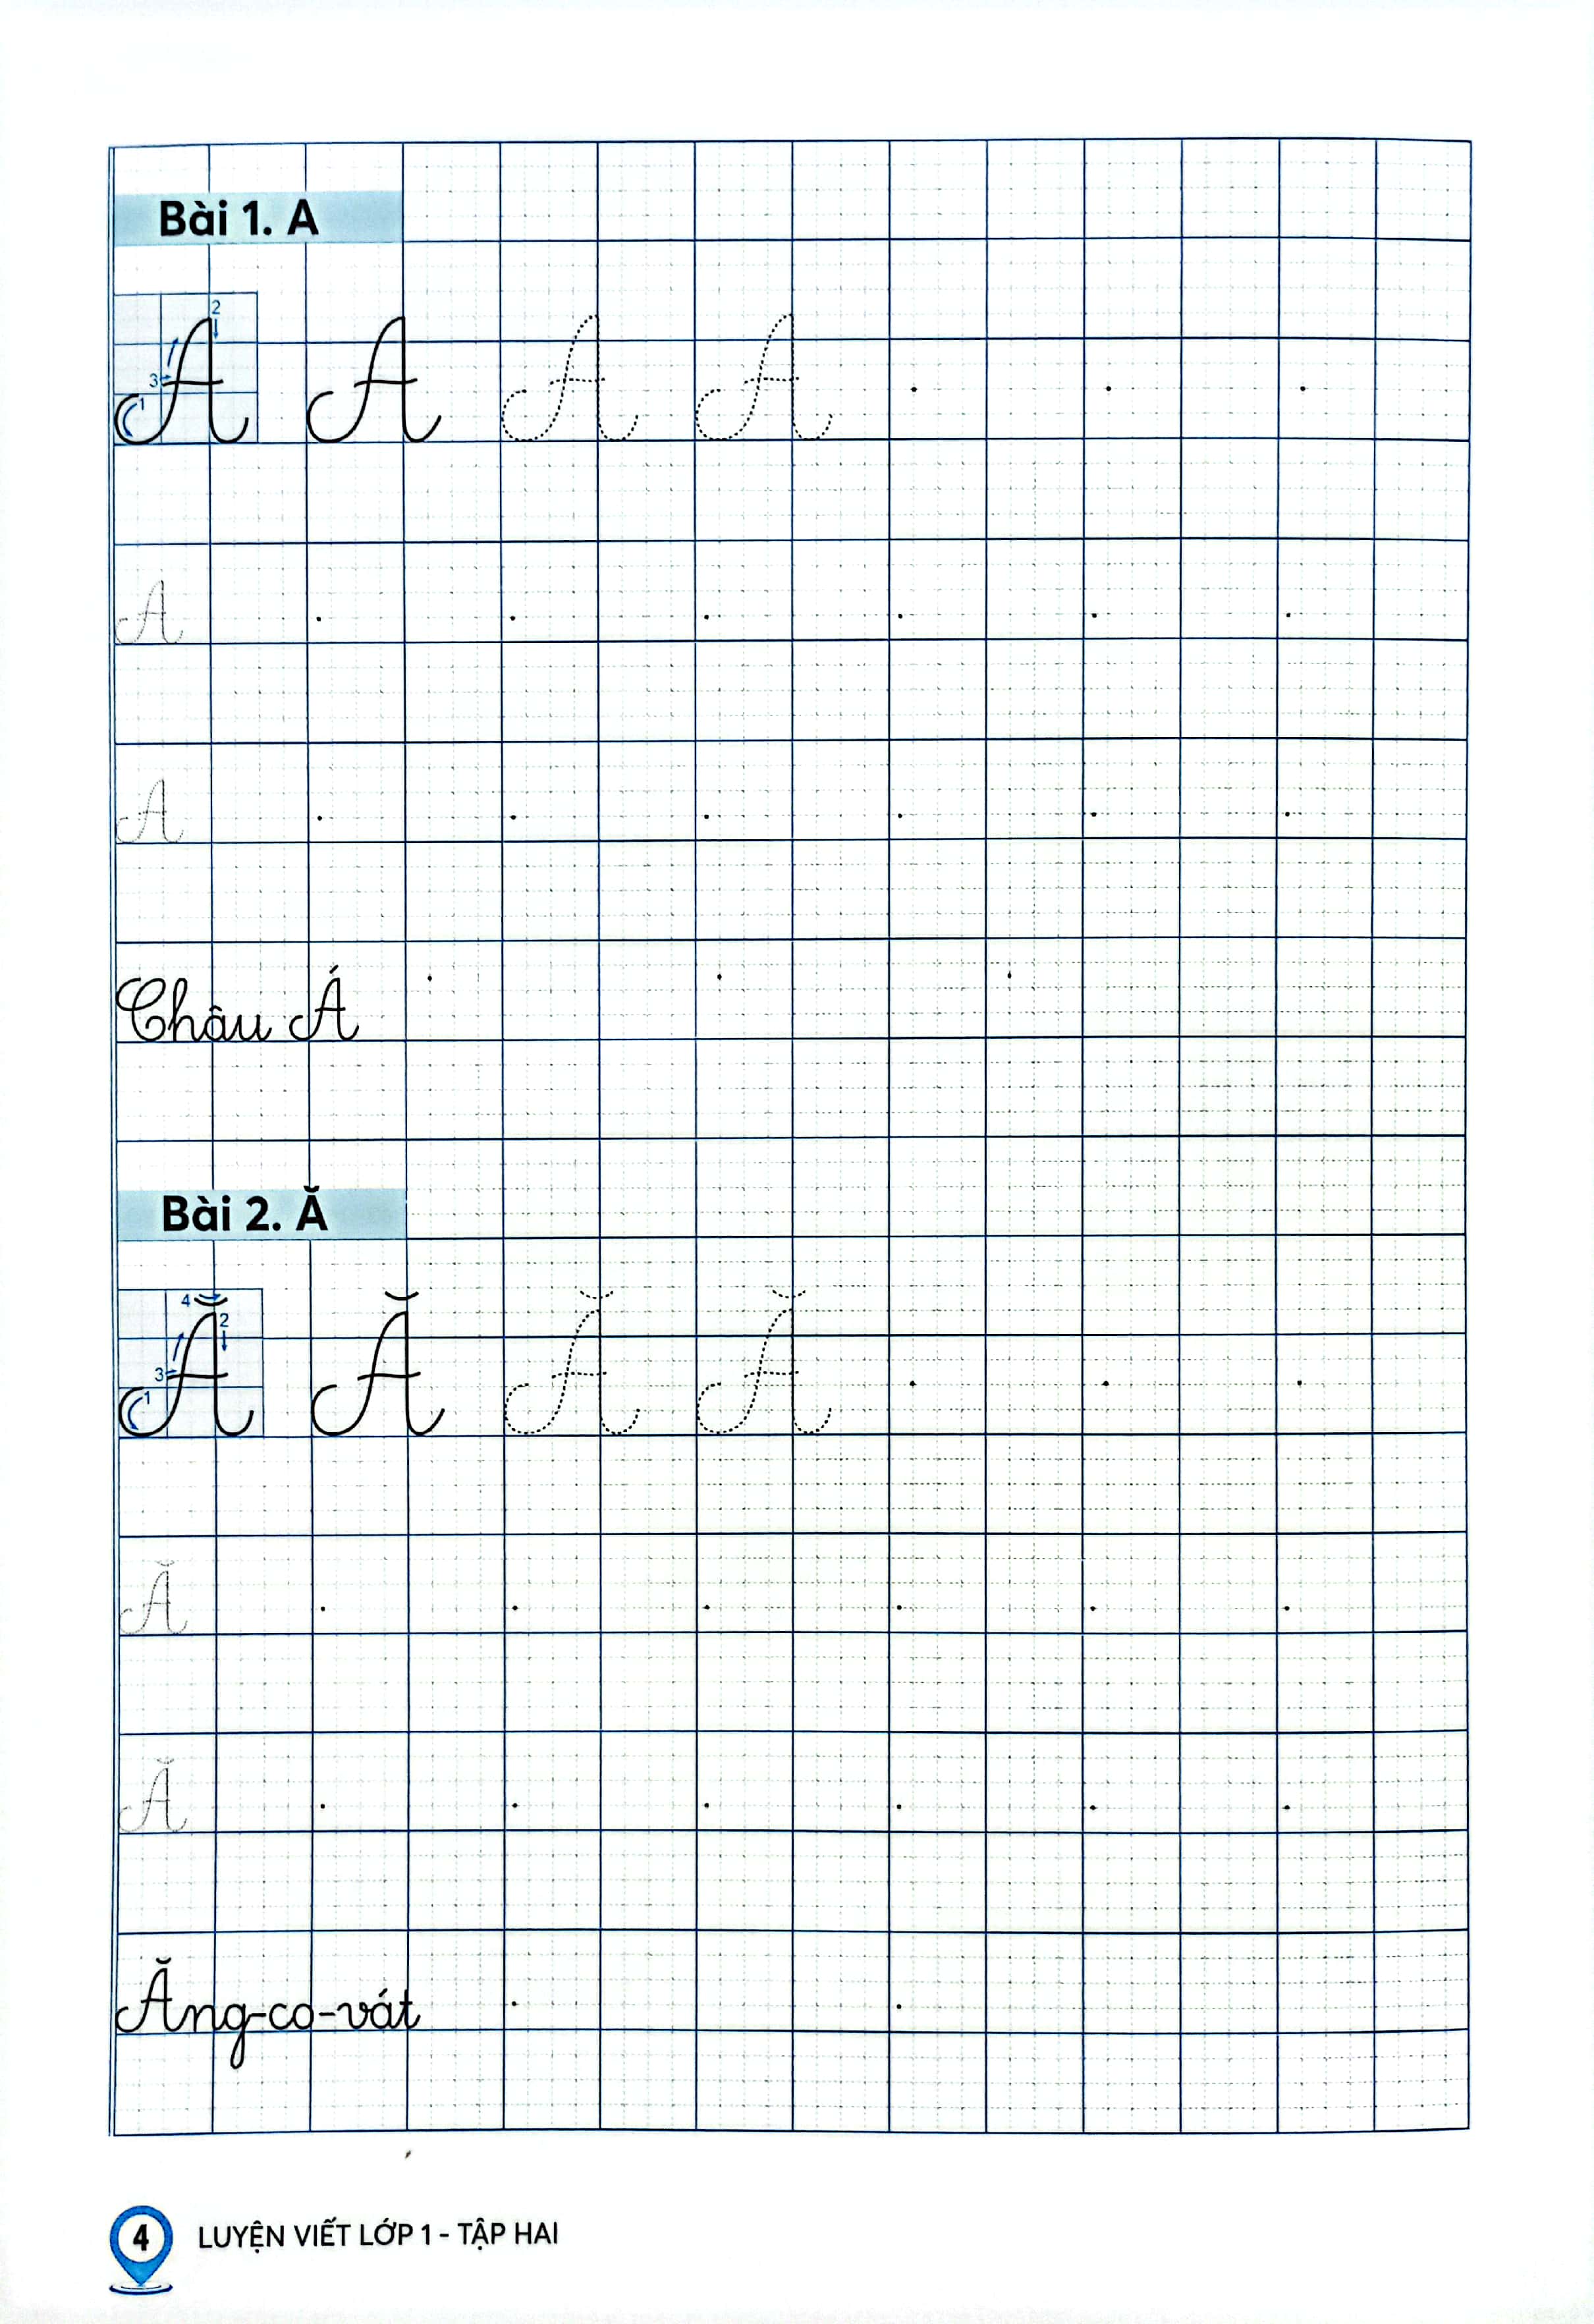 Bài 1. A
2
3
1
A A A A
A
A
Châu Á
Bài 2. Ă
4
2
3
1
Ă Ă Ă Ă
Ă
Ă
Ăng-co-vát
4 LUYỆN VIẾT LỚP 1 - TẬP HAI